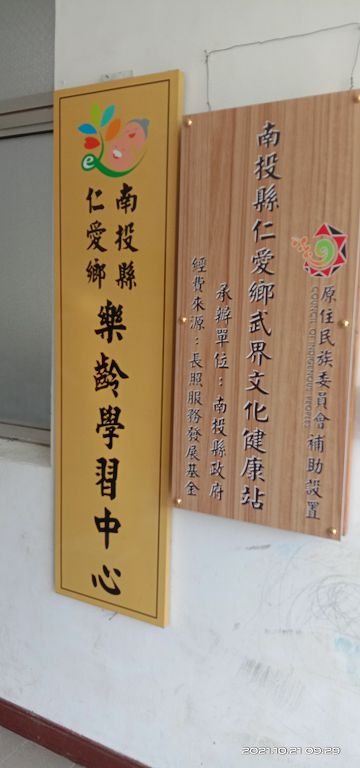 南投縣
仁愛鄉
樂齡學習中心
原住民族委員會 補助設置
COUNCIL OF INDIGENOUS PEOPLES
南投縣仁愛鄉武界文化健康站
承辦單位：南投縣政府
經費來源：長照服務發展基金
2021.10.21 09:29